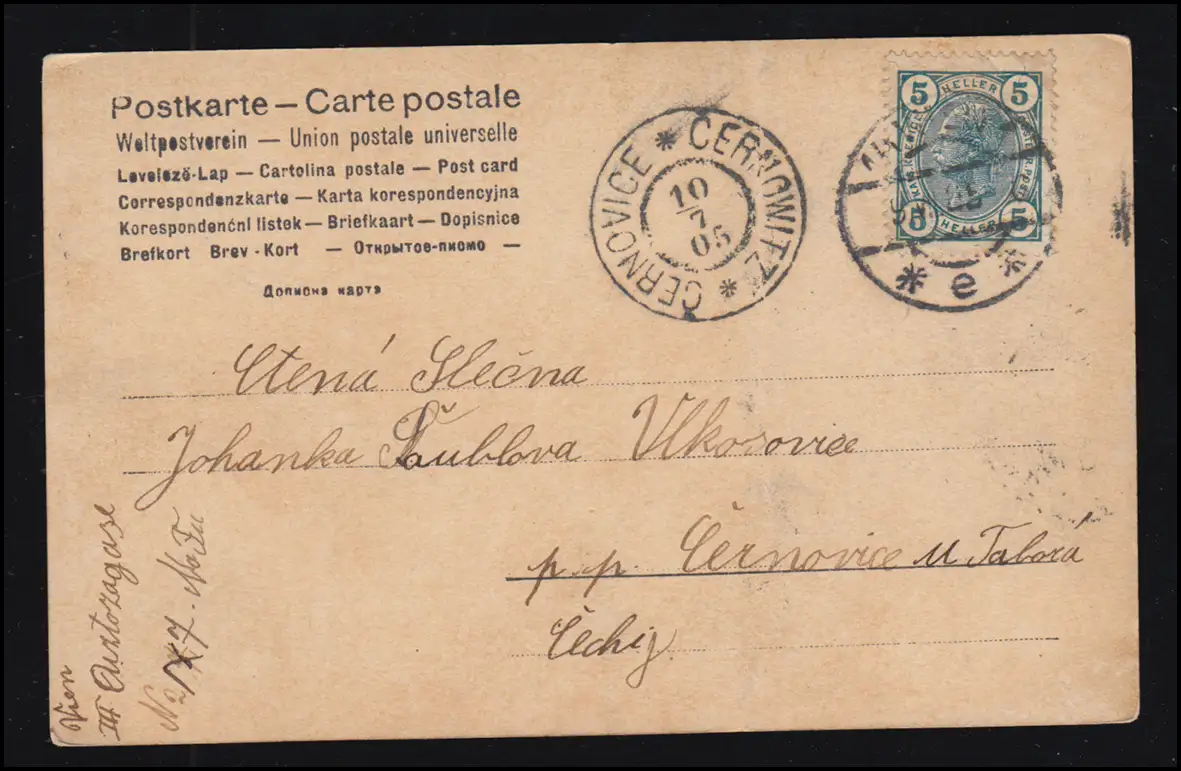 Postkarte — Carte postale
Weltpostverein — Union postale universelle
Levelező-Lap — Cartolina postale — Post card
Correspondenzkarte — Karta korespondencyjna
Korespondenční listek — Briefkaart — Dopisnice
Brefkort Brev-Kort — Открытое-письмо —
Дописна карта
ČERNOVICE * ČERNOWITZ *
10
7
05
5 HELLER 5
5 HELLER 5
* e *
Ctená Slečna
Johanka Šoublova Vlkosovice
p.p. Černovice u Taborá
Čechij
Vien
III
No